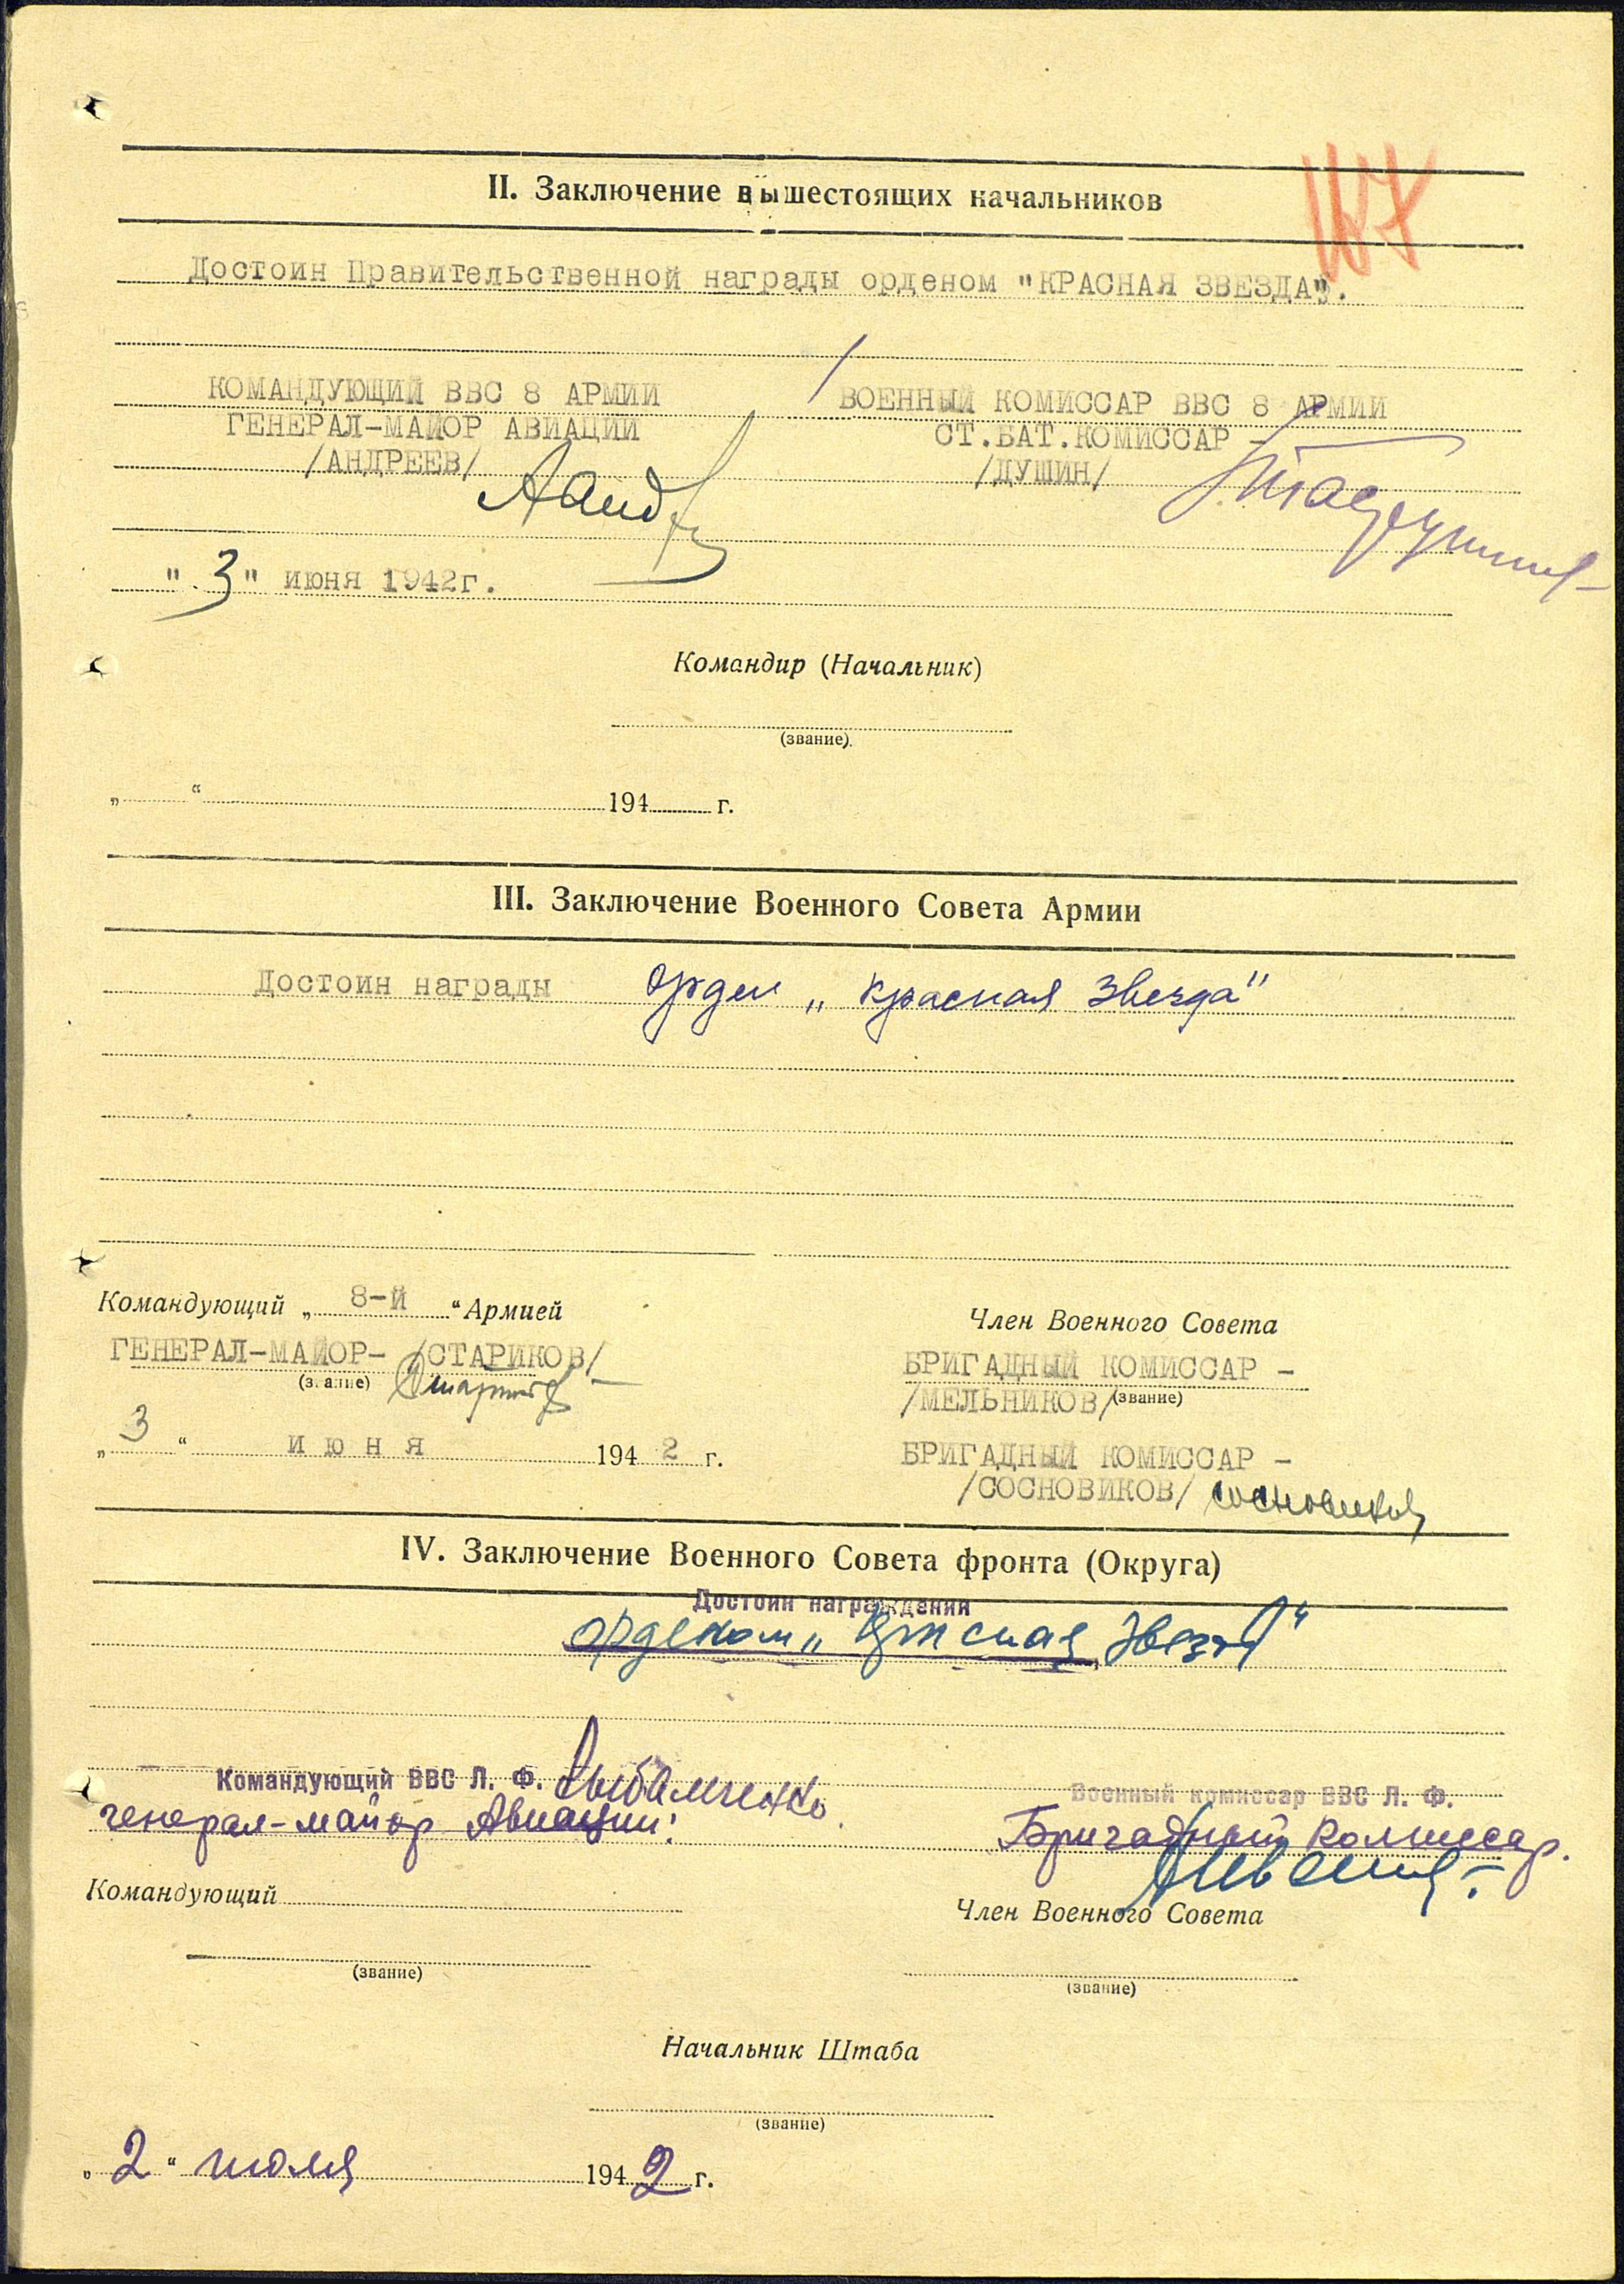 II. Заключение вышестоящих начальников
Достоин Правительственной награды орденом "КРАСНАЯ ЗВЕЗДА".
КОМАНДУЮЩИЙ ВВС 8 АРМИИ
ГЕНЕРАЛ-МАЙОР АВИАЦИИ
/АНДРЕЕВ/
ВОЕННЫЙ КОМИССАР ВВС 8 АРМИИ
СТ.БАТ.КОМИССАР -
/ДУШИН/
"3" июня 1942г.
Командир (Начальник)
(звание)
„ “ 194 г.
III. Заключение Военного Совета Армии
Достоин награды орден „Красная Звезда"
Командующий „8-й“ Армией
ГЕНЕРАЛ-МАЙОР- /СТАРИКОВ/
(звание)
„3“ июня 1942 г.
Член Военного Совета
БРИГАДНЫЙ КОМИССАР -
/МЕЛЬНИКОВ/ (звание)
БРИГАДНЫЙ КОМИССАР -
/СОСНОВИКОВ/ Сосновиков
IV. Заключение Военного Совета фронта (Округа)
Достоин награждения
орденом „Красная Звезда"
Командующий ВВС Л. Ф.
генерал-майор Авиации:
Военный комиссар ВВС Л. Ф.
Бригадный Комиссар.
Командующий
(звание)
Член Военного Совета
(звание)
Начальник Штаба
(звание)
„2“ июля 1942 г.